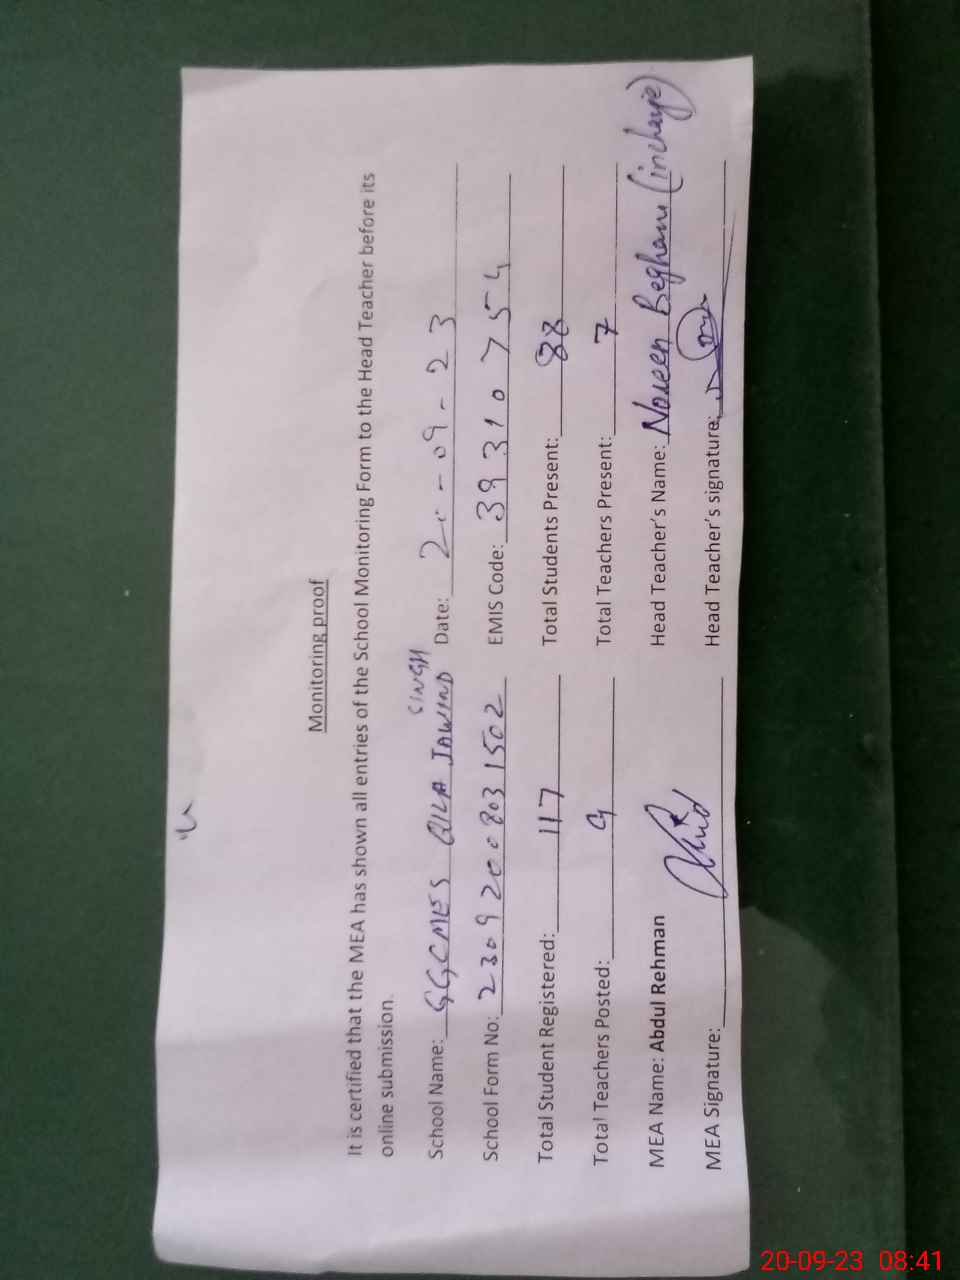 Monitoring proof
It is certified that the MEA has shown all entries of the School Monitoring Form to the Head Teacher before its
online submission.
School Name: GGCMES QILA JAWIND SINGH Date: 20-09-23
School Form No: 23092008031502 EMIS Code: 39310754
Total Student Registered: 117 Total Students Present: 88
Total Teachers Posted: 9 Total Teachers Present: 7
MEA Name: Abdul Rehman Head Teacher's Name: Noreen Begham (incharge)
MEA Signature: Head Teacher's signature:
20-09-23 08:41